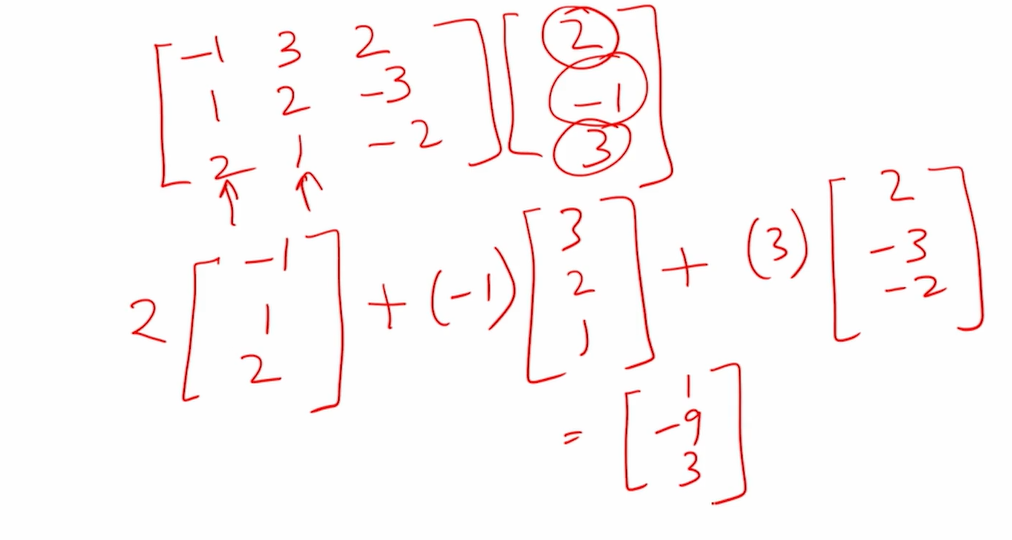 [ -1 3 2 ] [ 2 ]
[ 1 2 -3 ] [ -1 ]
[ 2 1 -2 ] [ 3 ]
↑ ↑
2 [ -1 1 2 ] + (-1) [ 3 2 1 ] + (3) [ 2 -3 -2 ]
= [ 1 -9 3 ]